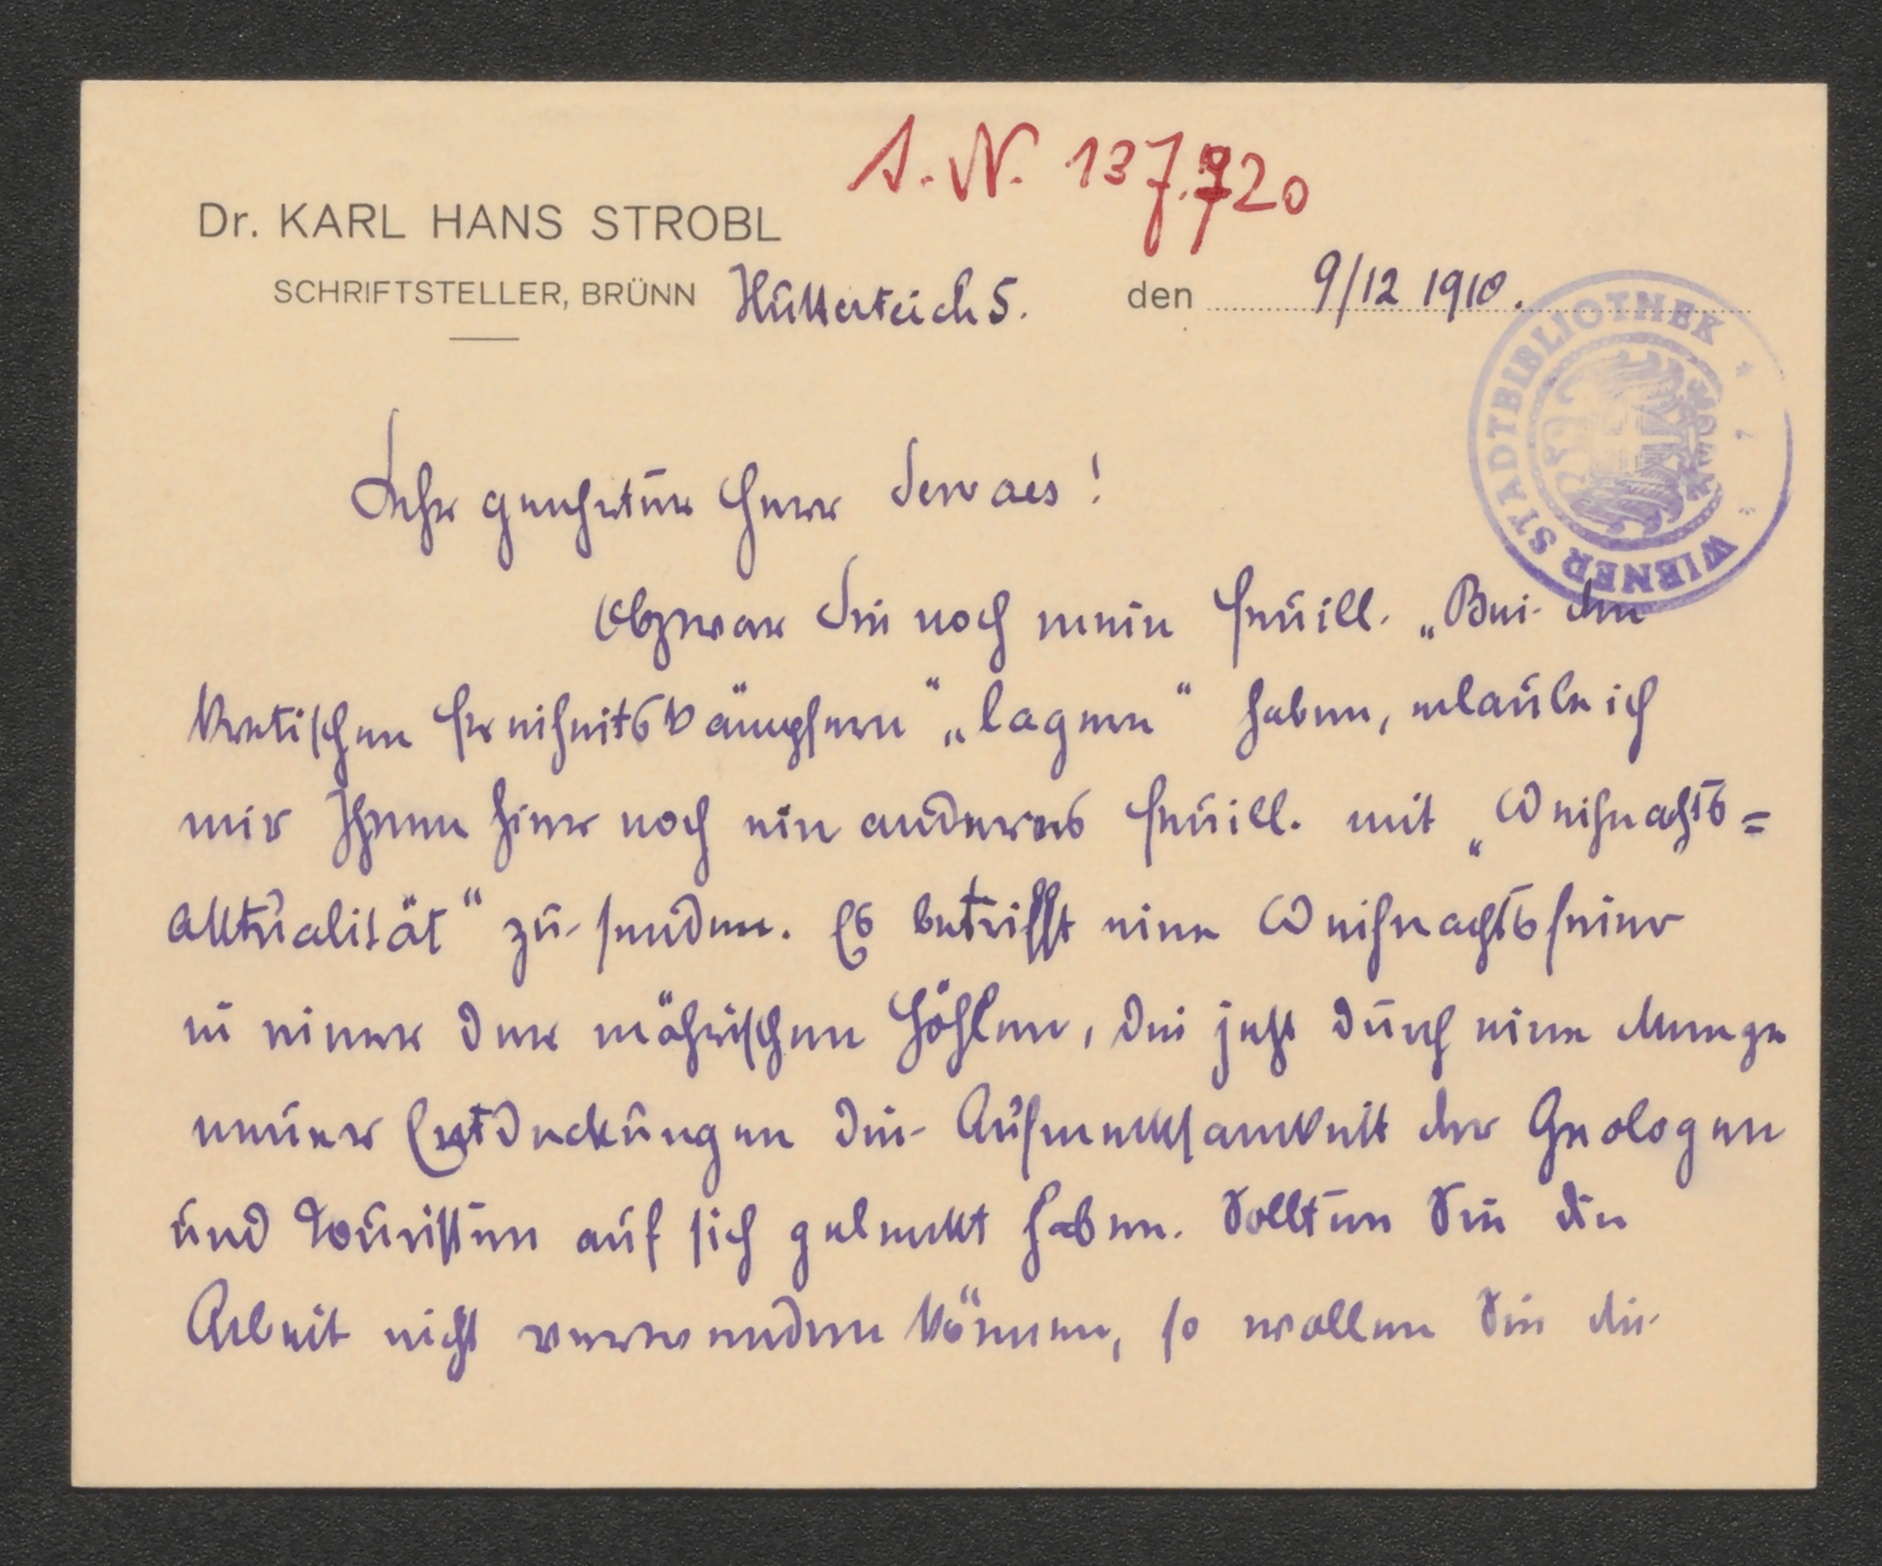 J. N. 137.920
Dr. KARL HANS STROBL
SCHRIFTSTELLER, BRÜNN Hutterteich 5. den 9/12 1910.
WIENER STADTBIBLIOTHEK
Sehr geehrter Herr Servaes!
Obzwar Sie noch mein Feuill. „Bei den
kretischen Freiheitskämpfern" „lagern" haben, erlaube ich
mir Ihnen hier noch ein anderes Feuill. mit „Weihnachts=
aktualität" zu senden. Es betrifft eine Weihnachtsfeier
in einer der mährischen Höhlen, die jetzt durch eine Menge
neuer Entdeckungen die Aufmerksamkeit der Geologen
und Touristen auf sich gelenkt haben. Sollten Sie die
Arbeit nicht verwenden können, so wollen Sie die